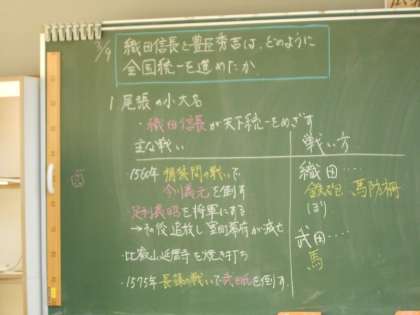 織田信長と豊臣秀吉は、どのように
全国統一を進めたか
1 尾張の小大名
・織田信長が天下統一をめざす
主な戦い
戦い方
・1560年 桶狭間の戦いで
今川義元を倒す
足利義昭を将軍にする
→その後追放し室町幕府が滅亡
・比叡山延暦寺を焼き打ち
・1575年長篠の戦いで武田氏を倒す
織田‥‥
鉄砲 馬防柵
ほり
武田‥‥
馬